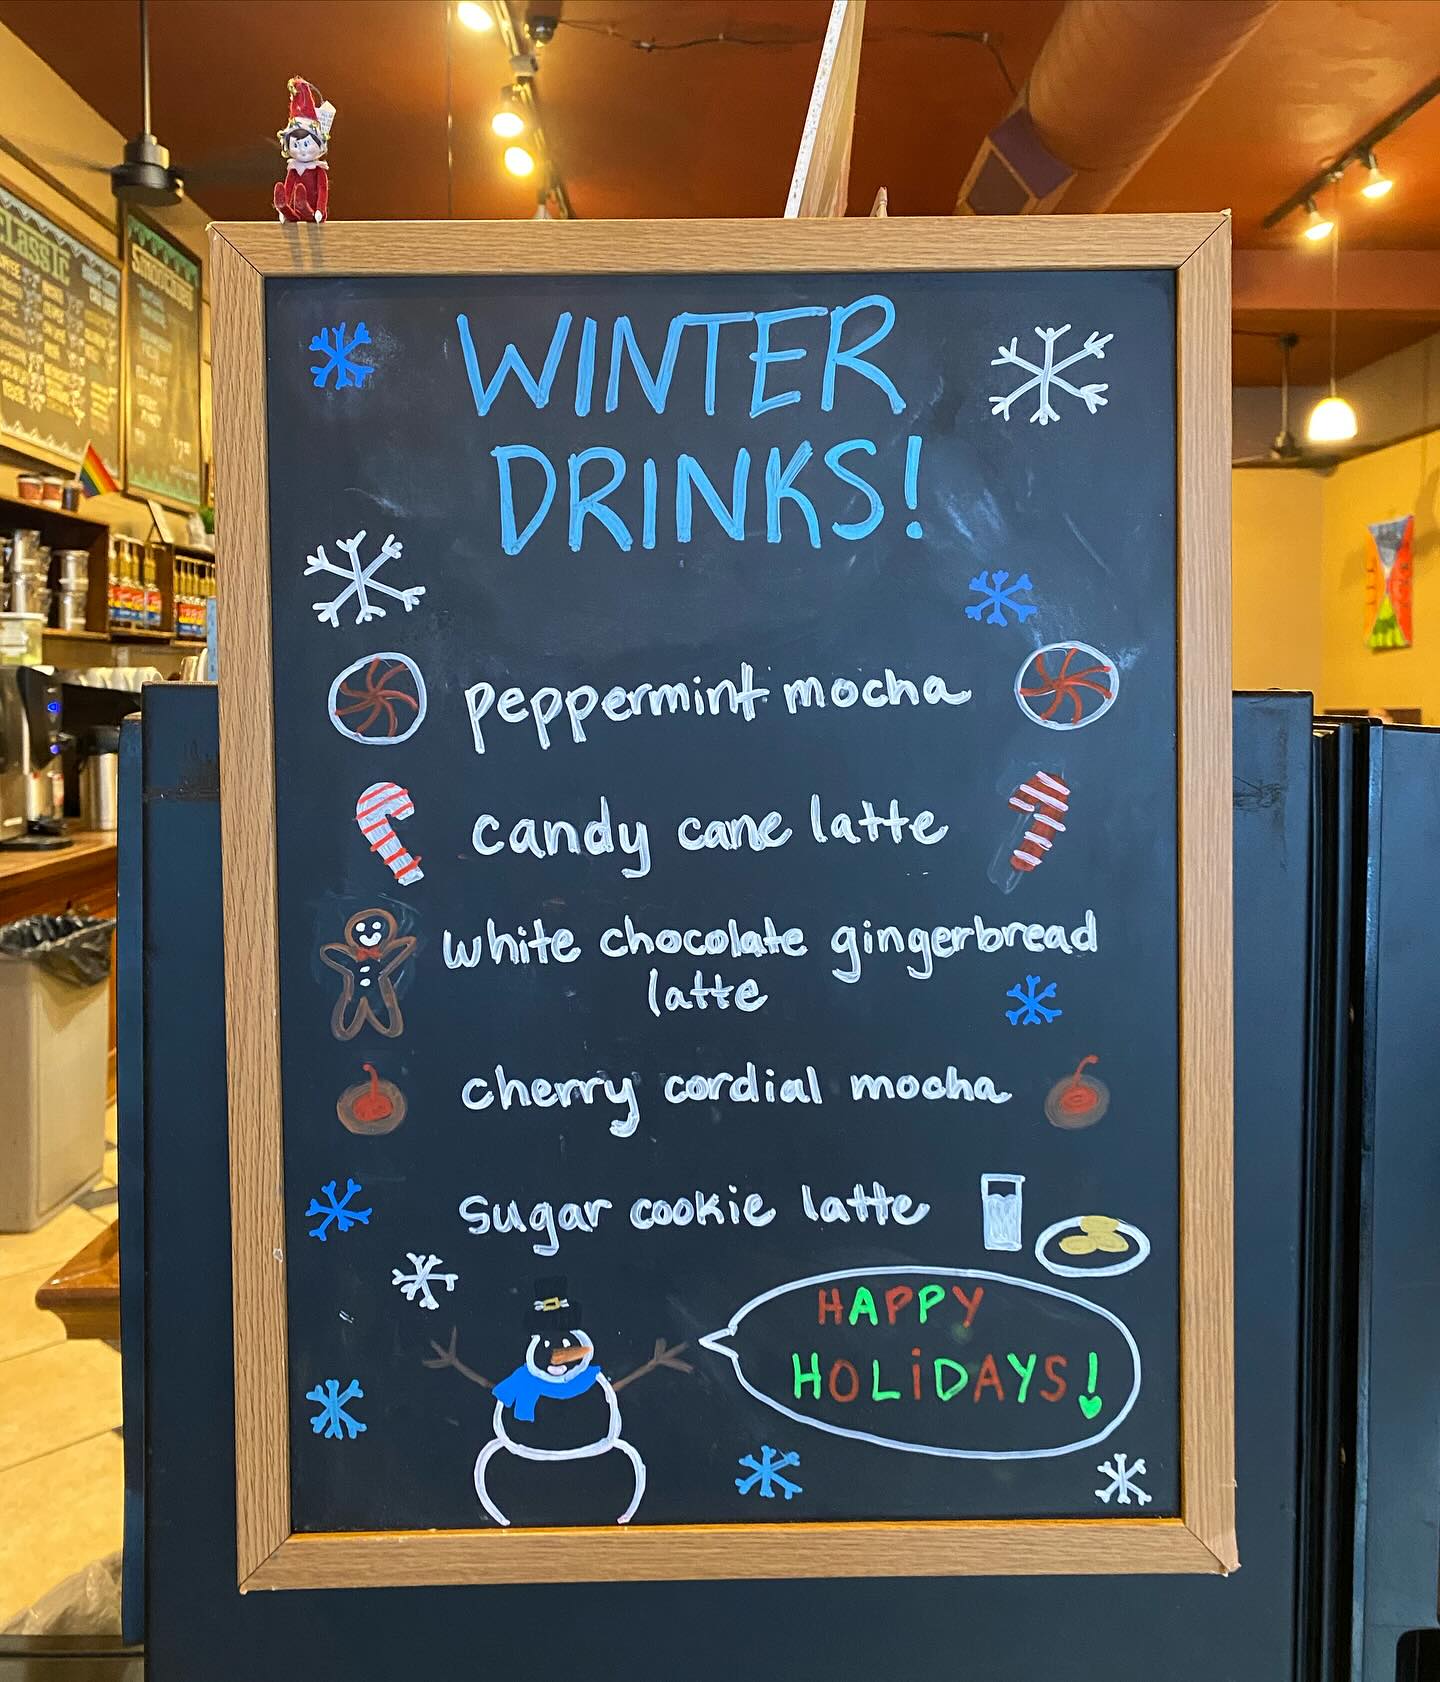 CLASSIC
SMOOTHIES
WINTER
DRINKS!
peppermint mocha
candy cane latte
white chocolate gingerbread
latte
cherry cordial mocha
sugar cookie latte
HAPPY
HOLiDAYS!